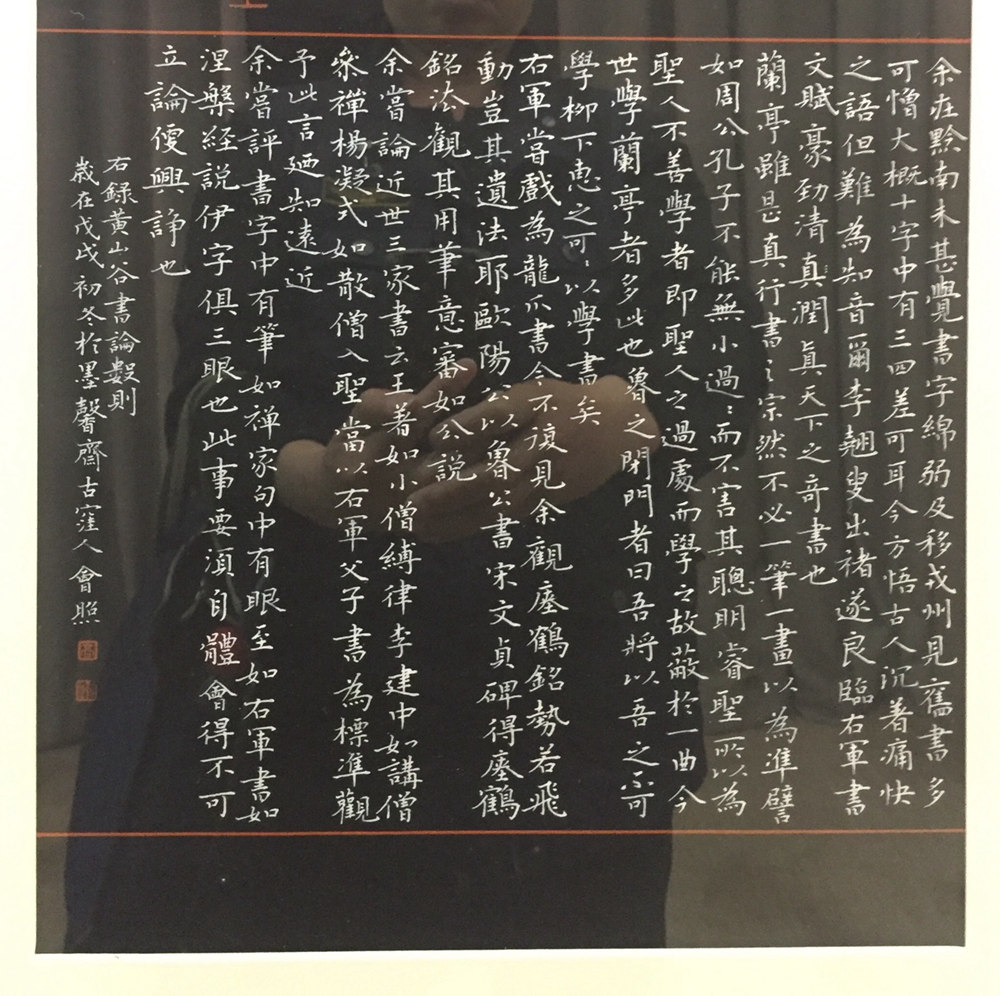 余在黔南未甚覺書字綿弱及移戎州見舊書多
可憎大概十字中有三四差可耳今方悟古人沉著痛快
之語但難為知音爾李翹叟出褚遂良臨右軍書
文賦豪勁清真潤真天下之奇書也
蘭亭雖是真行書〻宗然不必一筆一畫以為準譬
如周公孔子不能無小過〻而不害其聰明睿聖所以為
聖人不善學者即聖人之過處而學之故蔽於一曲今
世學蘭亭者多此也魯之閉門者曰吾將以吾之不可
學柳下惠之可〻以學書矣
右軍嘗戲為龍爪書今不復見余觀瘞鶴銘勢若飛
動豈其遺法耶歐陽公以魯公書宋文貞碑得瘞鶴
銘法觀其用筆意審如公說
余嘗論近世三家書云王著如小僧縛律李建中如講僧
參禪楊凝式如散僧入聖當以右軍父子書為標準觀
予此言廼知遠近
余嘗評書字中有筆如禪家句中有眼至如右軍書如
涅槃經說伊字俱三眼也此事要須自體會得不可
立論便興諍也
右錄黃山谷書論數則
歲在戊戌初冬於墨馨齋古窪人會照